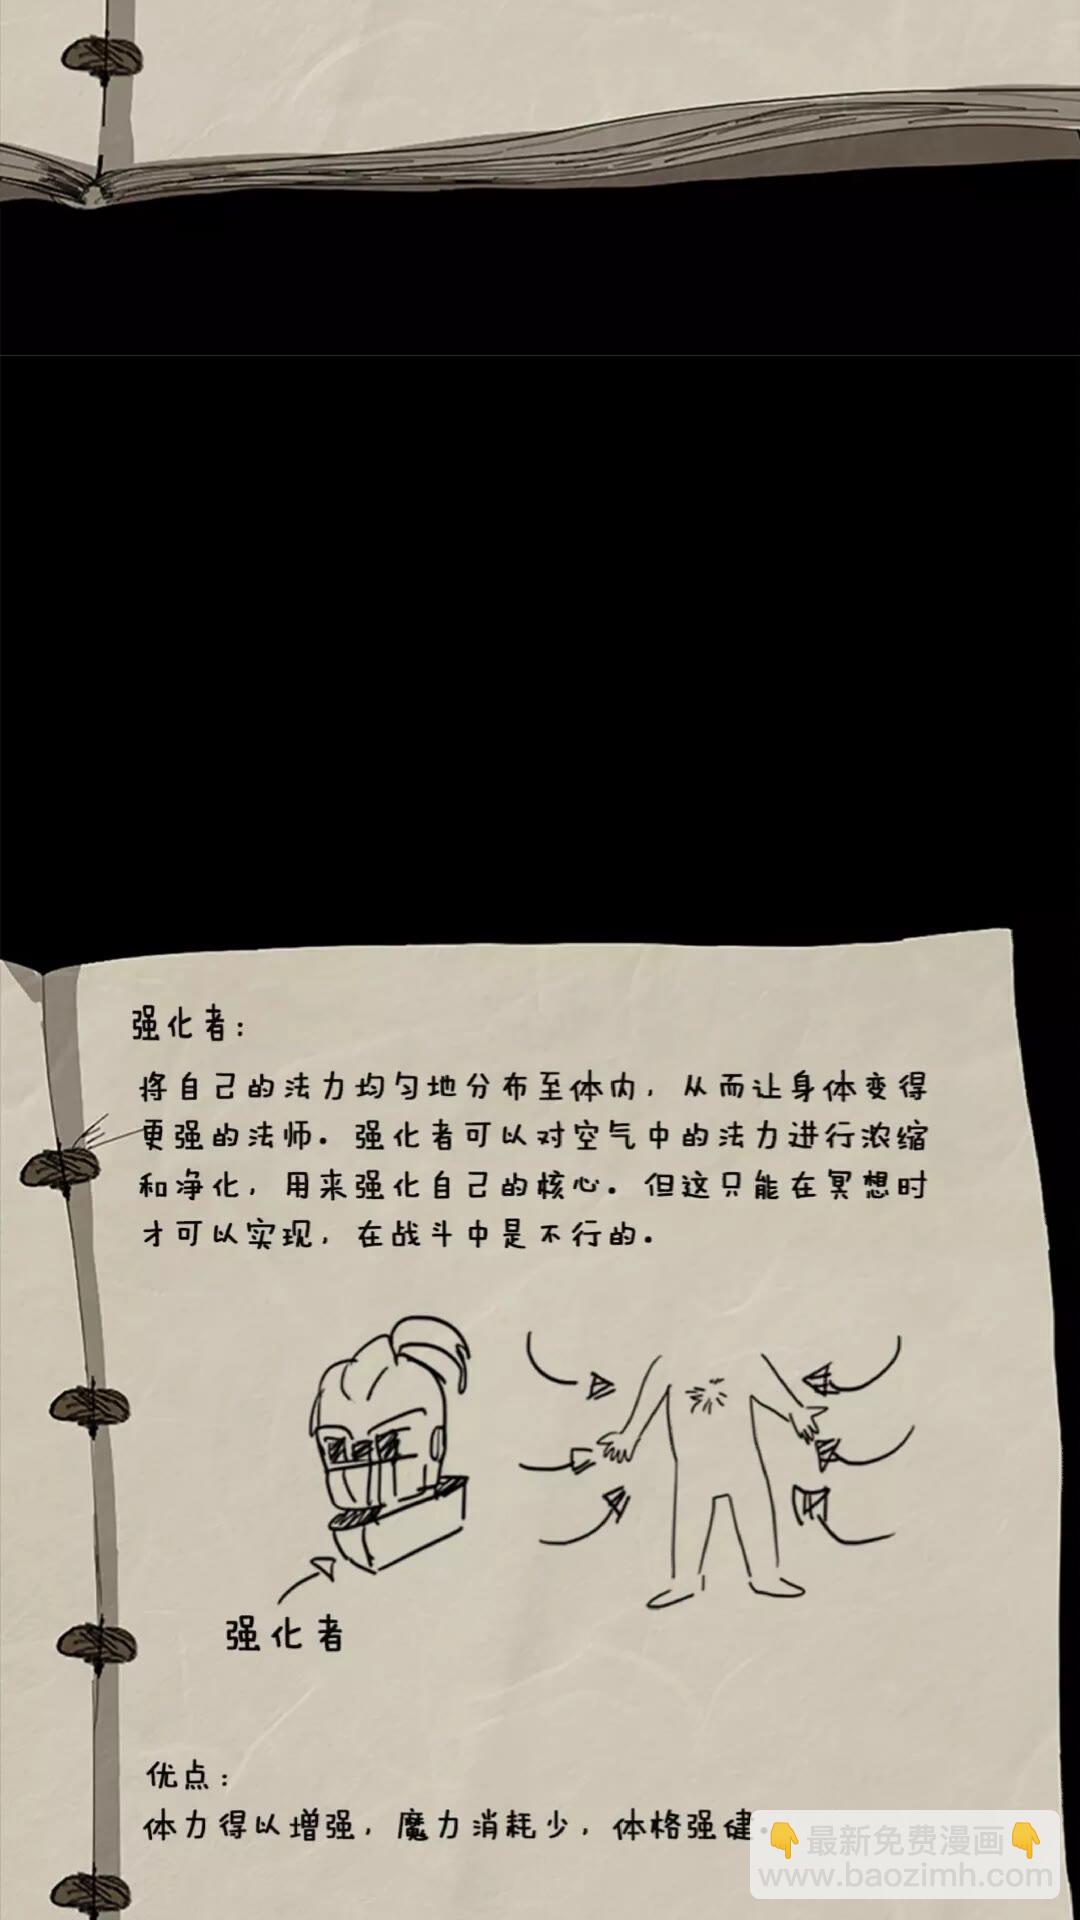 强化者：
将自己的法力均匀地分布至体内，从而让身体变得
更强的法师。强化者可以对空气中的法力进行浓缩
和净化，用来强化自己的核心。但这只能在冥想时
才可以实现，在战斗中是不行的。
强化者
优点：
体力得以增强，魔力消耗少，体格强健。
👇最新免费漫画👇
www.baozimh.com